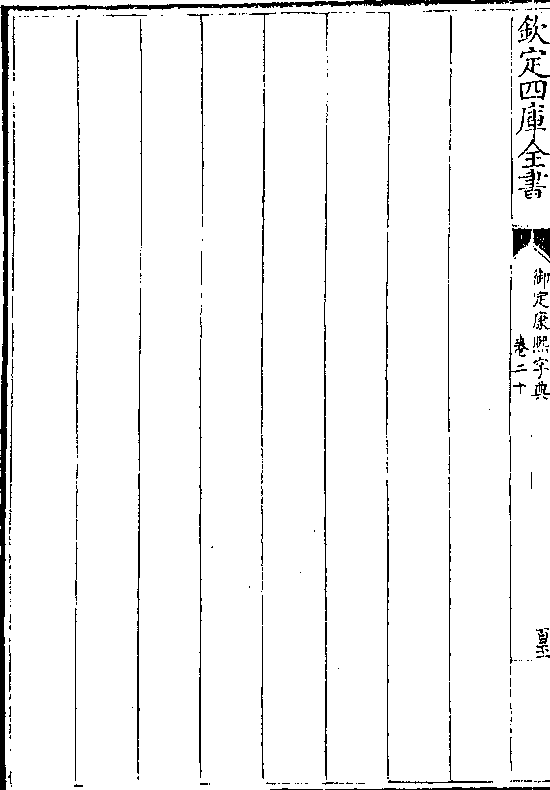 欽定四庫全書
御定康熙字典
卷二十